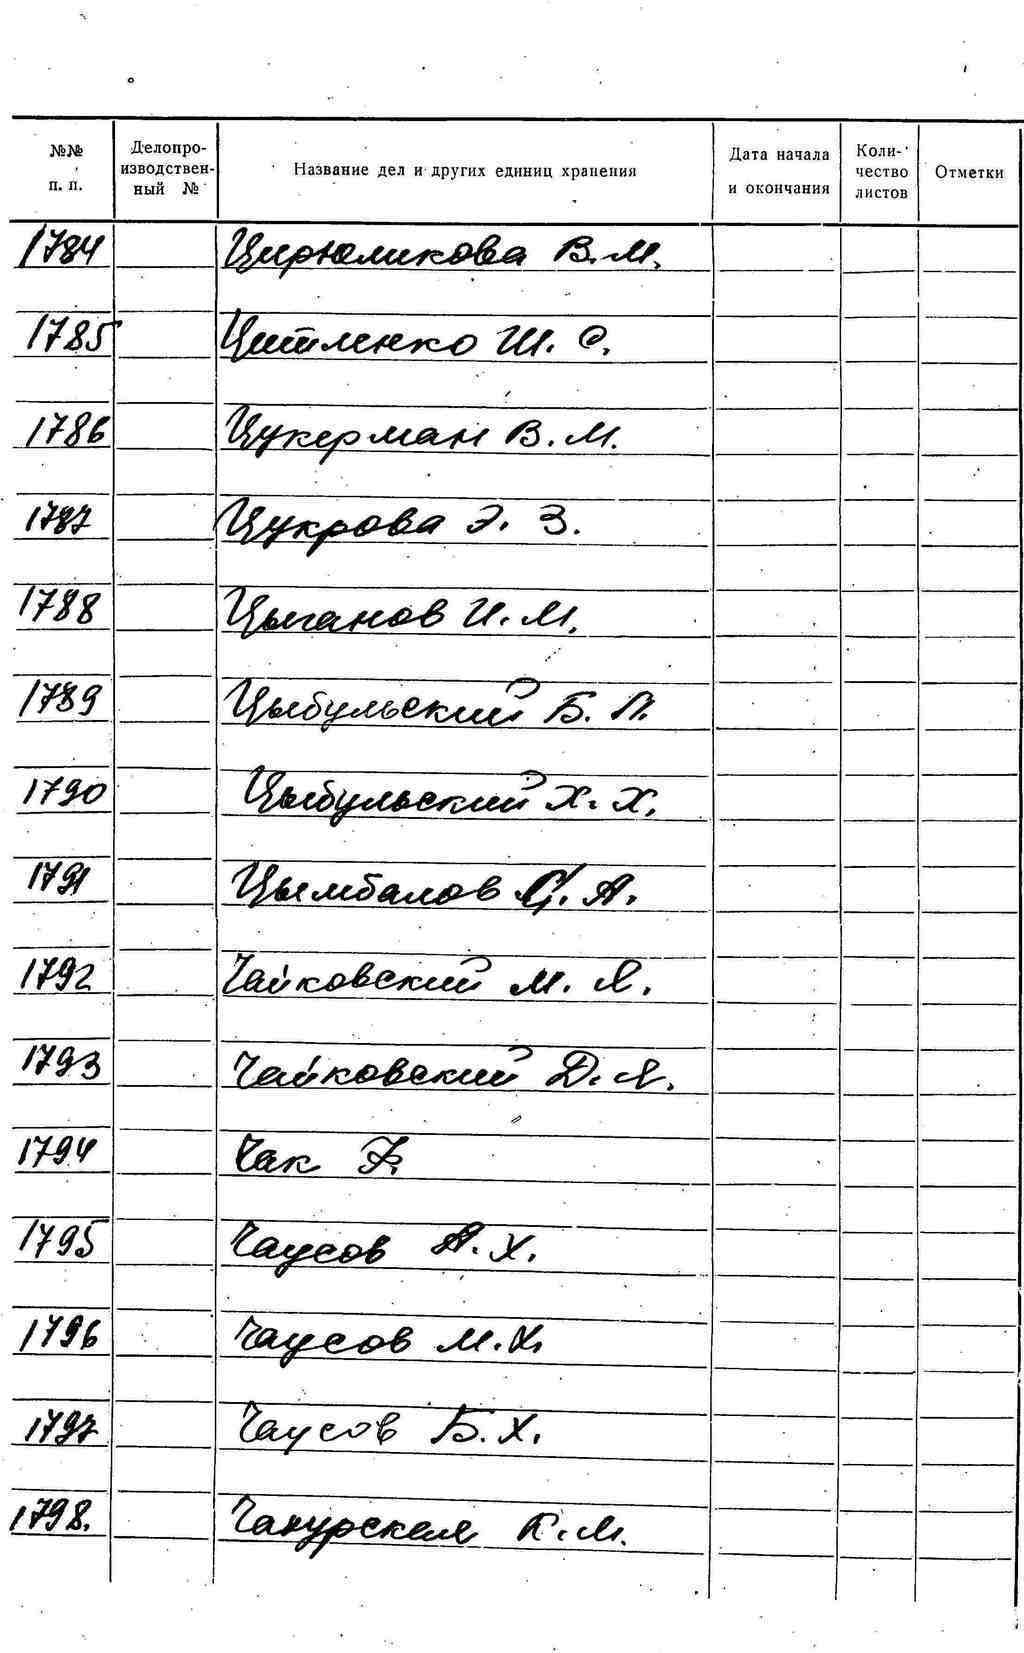 №№ п. п. Делопроизводственный № Название дел и других единиц хранения Дата начала и окончания Количество листов Отметки
1784 Цирюликова В.М.
1785 Цитленко Ш. С.
1786 Цукерман В.М.
1787 Цукрова Э. З.
1788 Цыганов И.М.
1789 Цыбульский Б. П.
1790 Цыбульский Х. Х.
1791 Цымбалов А.
1792 Чайковский М. Я.
1793 Чайковский Д. Я.
1794 Чак Р.
1795 Чаусов А. Х.
1796 Чаусов М.Х.
1797 Чаусов Б.Х.
1798. К.М.